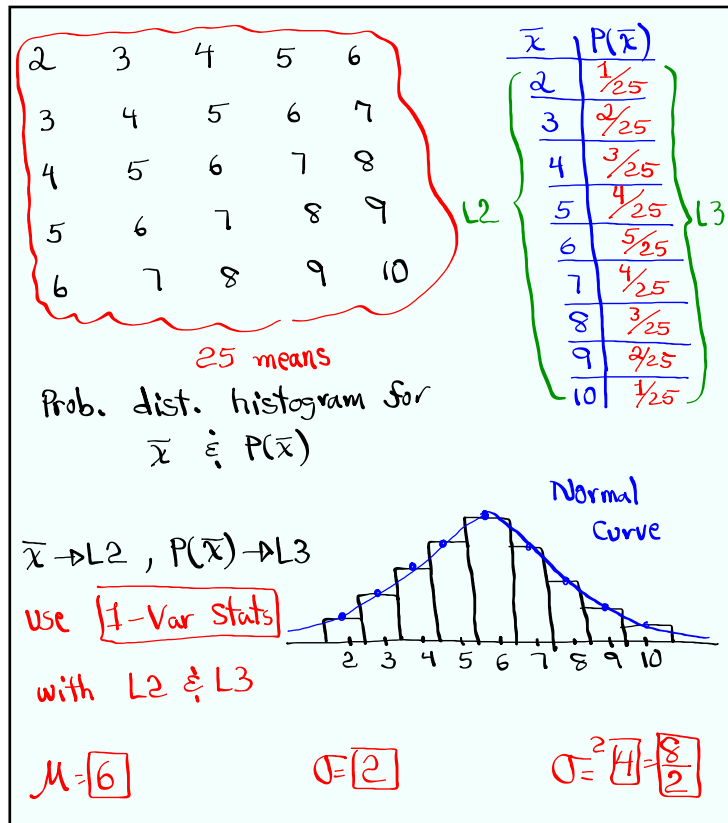 2 3 4 5 6
3 4 5 6 7
4 5 6 7 8
5 6 7 8 9
6 7 8 9 10
25 means
x̄ P(x̄)
2 1/25
3 2/25
4 3/25
5 4/25
6 5/25
7 4/25
8 3/25
9 2/25
10 1/25
L2
L3
Prob. dist. histogram for
x̄ & P(x̄)
x̄ → L2 , P(x̄) → L3
use 1-Var Stats
with L2 & L3
Normal
Curve
2 3 4 5 6 7 8 9 10
μ = 6
σ = 2
σ² = 4 = 8/2